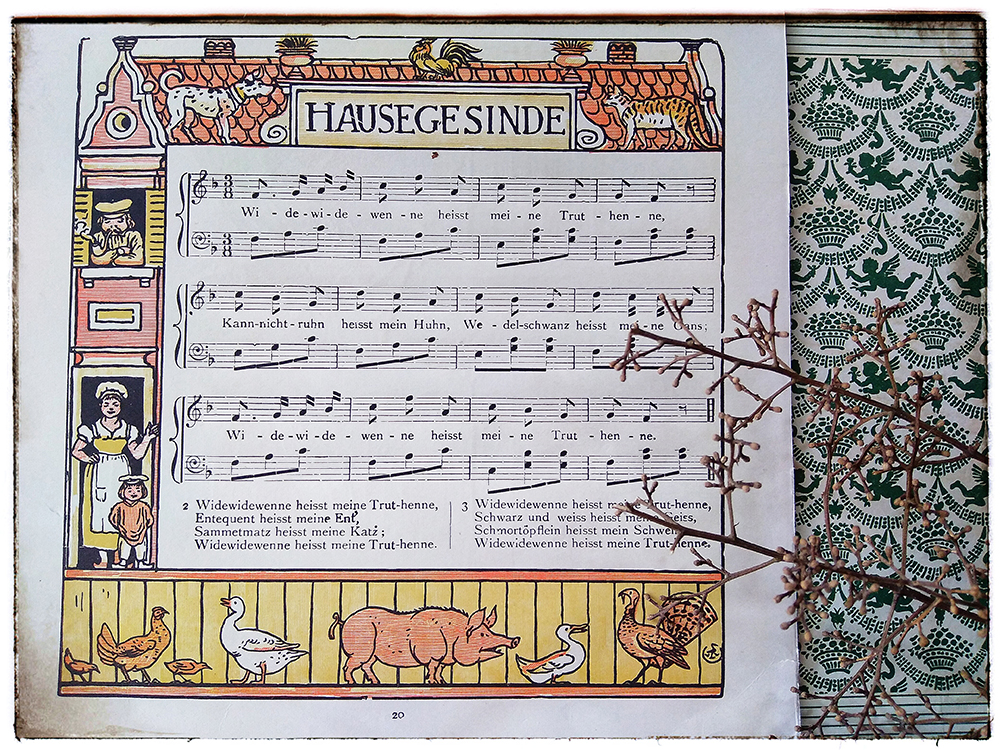 HAUSEGESINDE
Wi - de - wi - de - wen - ne heisst mei - ne Trut - hen - ne,
Kann-nicht - ruhn heisst mein Huhn, We - del-schwanz heisst mei - ne Gans;
Wi - de - wi - de - wen - ne heisst mei - ne Trut - hen - ne.
2 Widewidewenne heisst meine Trut-henne,
Entequent heisst meine Ent',
Sammetmatz heisst meine Katz';
Widewidewenne heisst meine Trut-henne.
3 Widewidewenne heisst meine Trut-henne,
Schwarz und weiss heisst meine
Schmortöpflein heisst mein
Widewidewenne heisst meine Trut-henne.
20